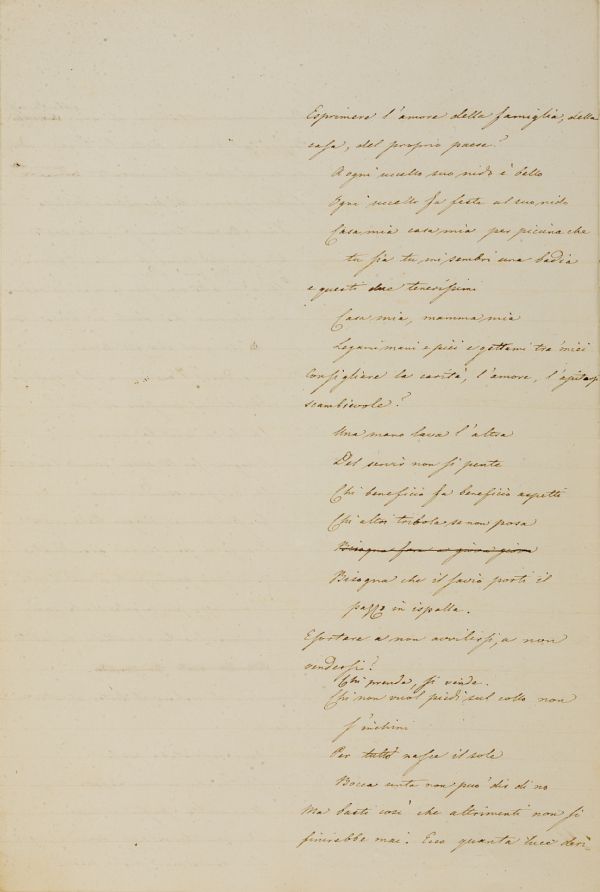 Esprimere l'amore della famiglia, della
casa, del proprio paese?
A ogni uccello suo nido è bello
Ogni uccello fa festa al suo nido
Casa mia casa mia per piccina che
tu sia tu mi sembri una badia
e questi due tenerissimi
Casa mia, mamma mia
Legami mani e piei e gettami tra' miei
Consigliare la carità, l'amore, l'
scambievole?
Una mano lava l'altra
Del servir non si pente
Chi beneficio fa beneficio aspetti
Chi altri tribola se non posa
Bisogna che il savio porti il
pazzo in ispalla.
Esortare a non avvilirsi, a non
vendersi?
Chi prende, si vende.
Chi non vuol piedi sul collo non
s'inchini
Per tutto nasce il sole
Bocca unta non può dir di no
Ma basti così che altrimenti non si
finirebbe mai. Ecco quanta luce deri-